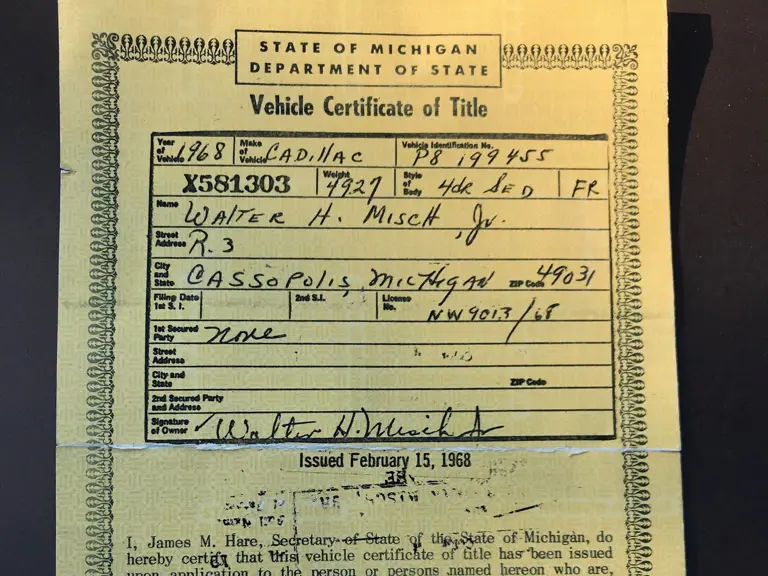 STATE OF MICHIGAN
DEPARTMENT OF STATE
Vehicle Certificate of Title
Year of Vehicle 1968 Make of Vehicle CADILLAC Vehicle Identification No. P8 199455
X581303 Weight 4927 Style of Body 4DR SED FR
Name WALTER H. MISCH, Jr.
Street Address R. 3
City and State CASSOPOLIS, MICHIGAN ZIP Code 49031
Filing Date 1st S. I. 2nd S.I. License No. NW9013/68
1st Secured Party None
Street Address
City and State ZIP Code
2nd Secured Party and Address
Signature of Owner Walter H. Misch Jr
Issued February 15, 1968
I, James M. Hare, Secretary of State of the State of Michigan, do
hereby certify that this vehicle certificate of title has been issued
upon application to the person or persons named hereon who are,